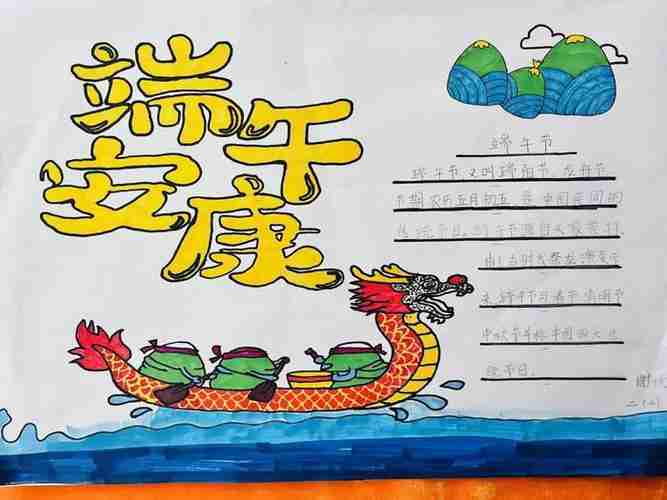 端午
安康
端午节
端午节又叫端阳节 龙舟节
节期农历五月初五 是中国民间的
传统节日。端午节源自天象崇拜，
由上古时代祭龙演变而
来 端午节与春节 清明节
中秋节并称中国四大传
统节日。
谢
二（二）